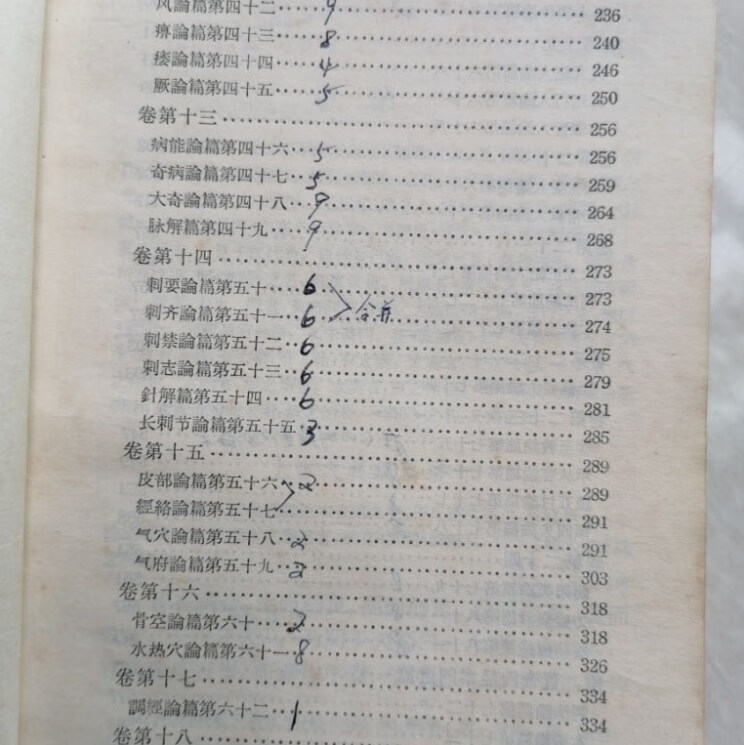 风論篇第四十二 9 236
痹論篇第四十三 8 240
痿論篇第四十四 4 246
厥論篇第四十五 5 250
卷第十三 256
病能論篇第四十六 5 256
奇病論篇第四十七 5 259
大奇論篇第四十八 9 264
脉解篇第四十九 9 268
卷第十四 273
刺要論篇第五十 6 273
刺齐論篇第五十一 6 合并 274
刺禁論篇第五十二 6 275
刺志論篇第五十三 6 279
針解篇第五十四 6 281
长刺节論篇第五十五 3 285
卷第十五 289
皮部論篇第五十六 2 289
經絡論篇第五十七 291
气穴論篇第五十八 2 291
气府論篇第五十九 2 303
卷第十六 318
骨空論篇第六十 2 318
水热穴論篇第六十一 8 326
卷第十七 334
調經論篇第六十二 1 334
卷第十八